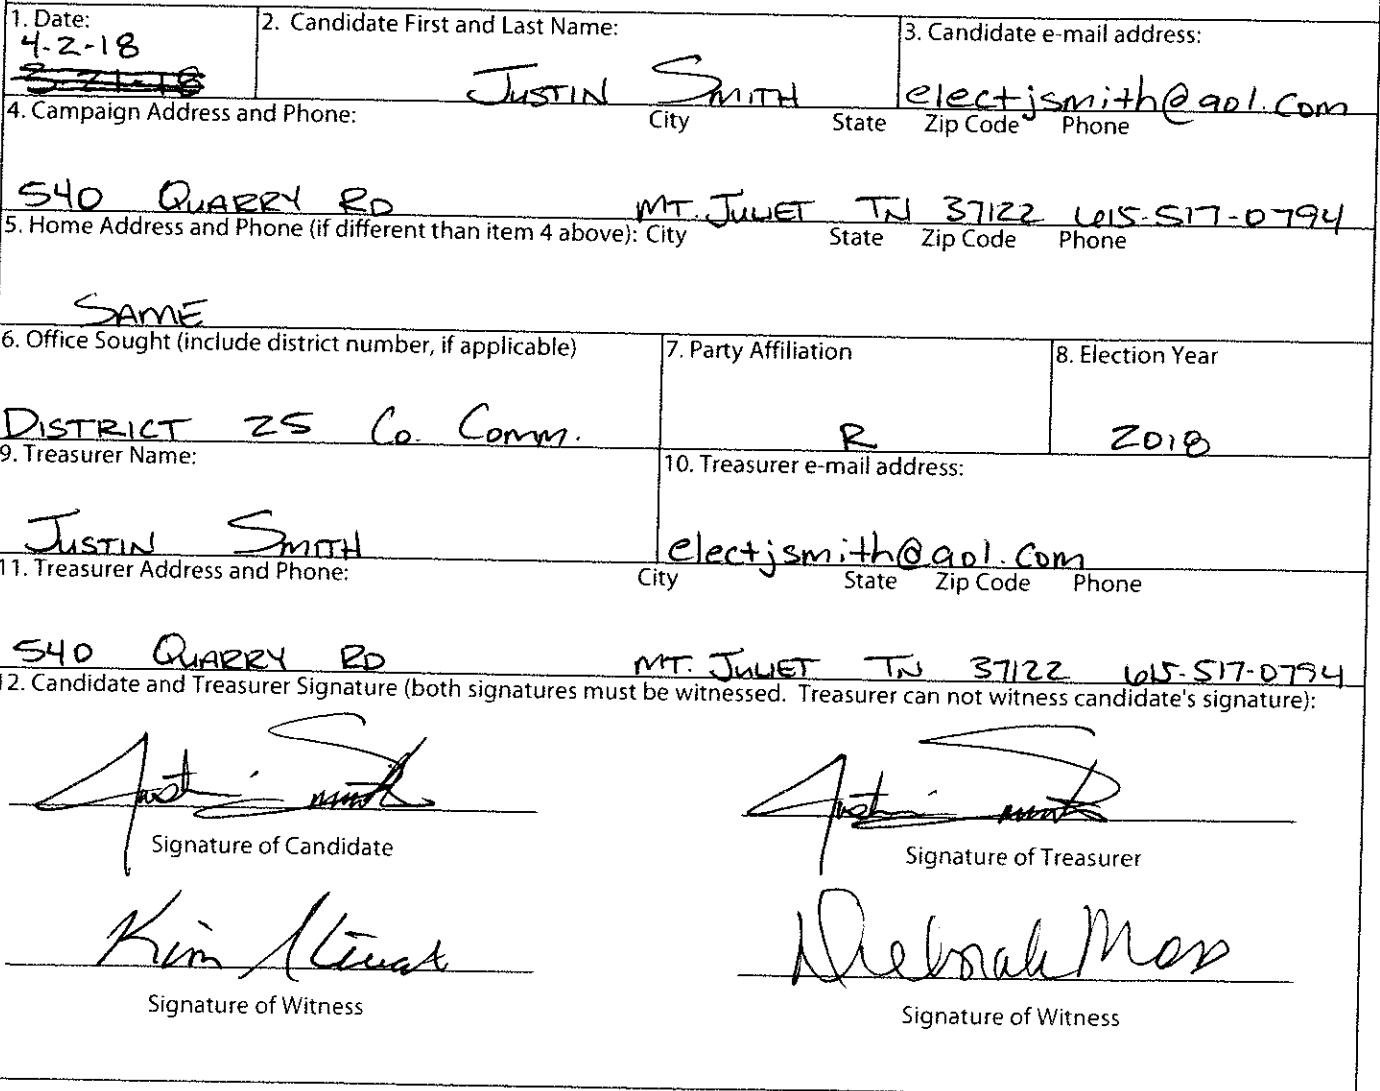 1. Date:
2. Candidate First and Last Name:
3. Candidate e-mail address:
4-2-18
3-21-18
JUSTIN SMITH
electjsmith@aol.com
4. Campaign Address and Phone: City State Zip Code Phone
540 QUARRY RD MT. JULIET TN 37122 615-517-0794
5. Home Address and Phone (if different than item 4 above): City State Zip Code Phone
SAME
6. Office Sought (include district number, if applicable)
7. Party Affiliation
8. Election Year
DISTRICT 25 Co. Comm.
R
2018
9. Treasurer Name:
10. Treasurer e-mail address:
JUSTIN SMITH
electjsmith@aol.com
11. Treasurer Address and Phone: City State Zip Code Phone
540 QUARRY RD MT. JULIET TN 37122 615-517-0794
12. Candidate and Treasurer Signature (both signatures must be witnessed. Treasurer can not witness candidate's signature):
Justin Smith
Justin Smith
Signature of Candidate
Signature of Treasurer
Kim
Deborah Moss
Signature of Witness
Signature of Witness